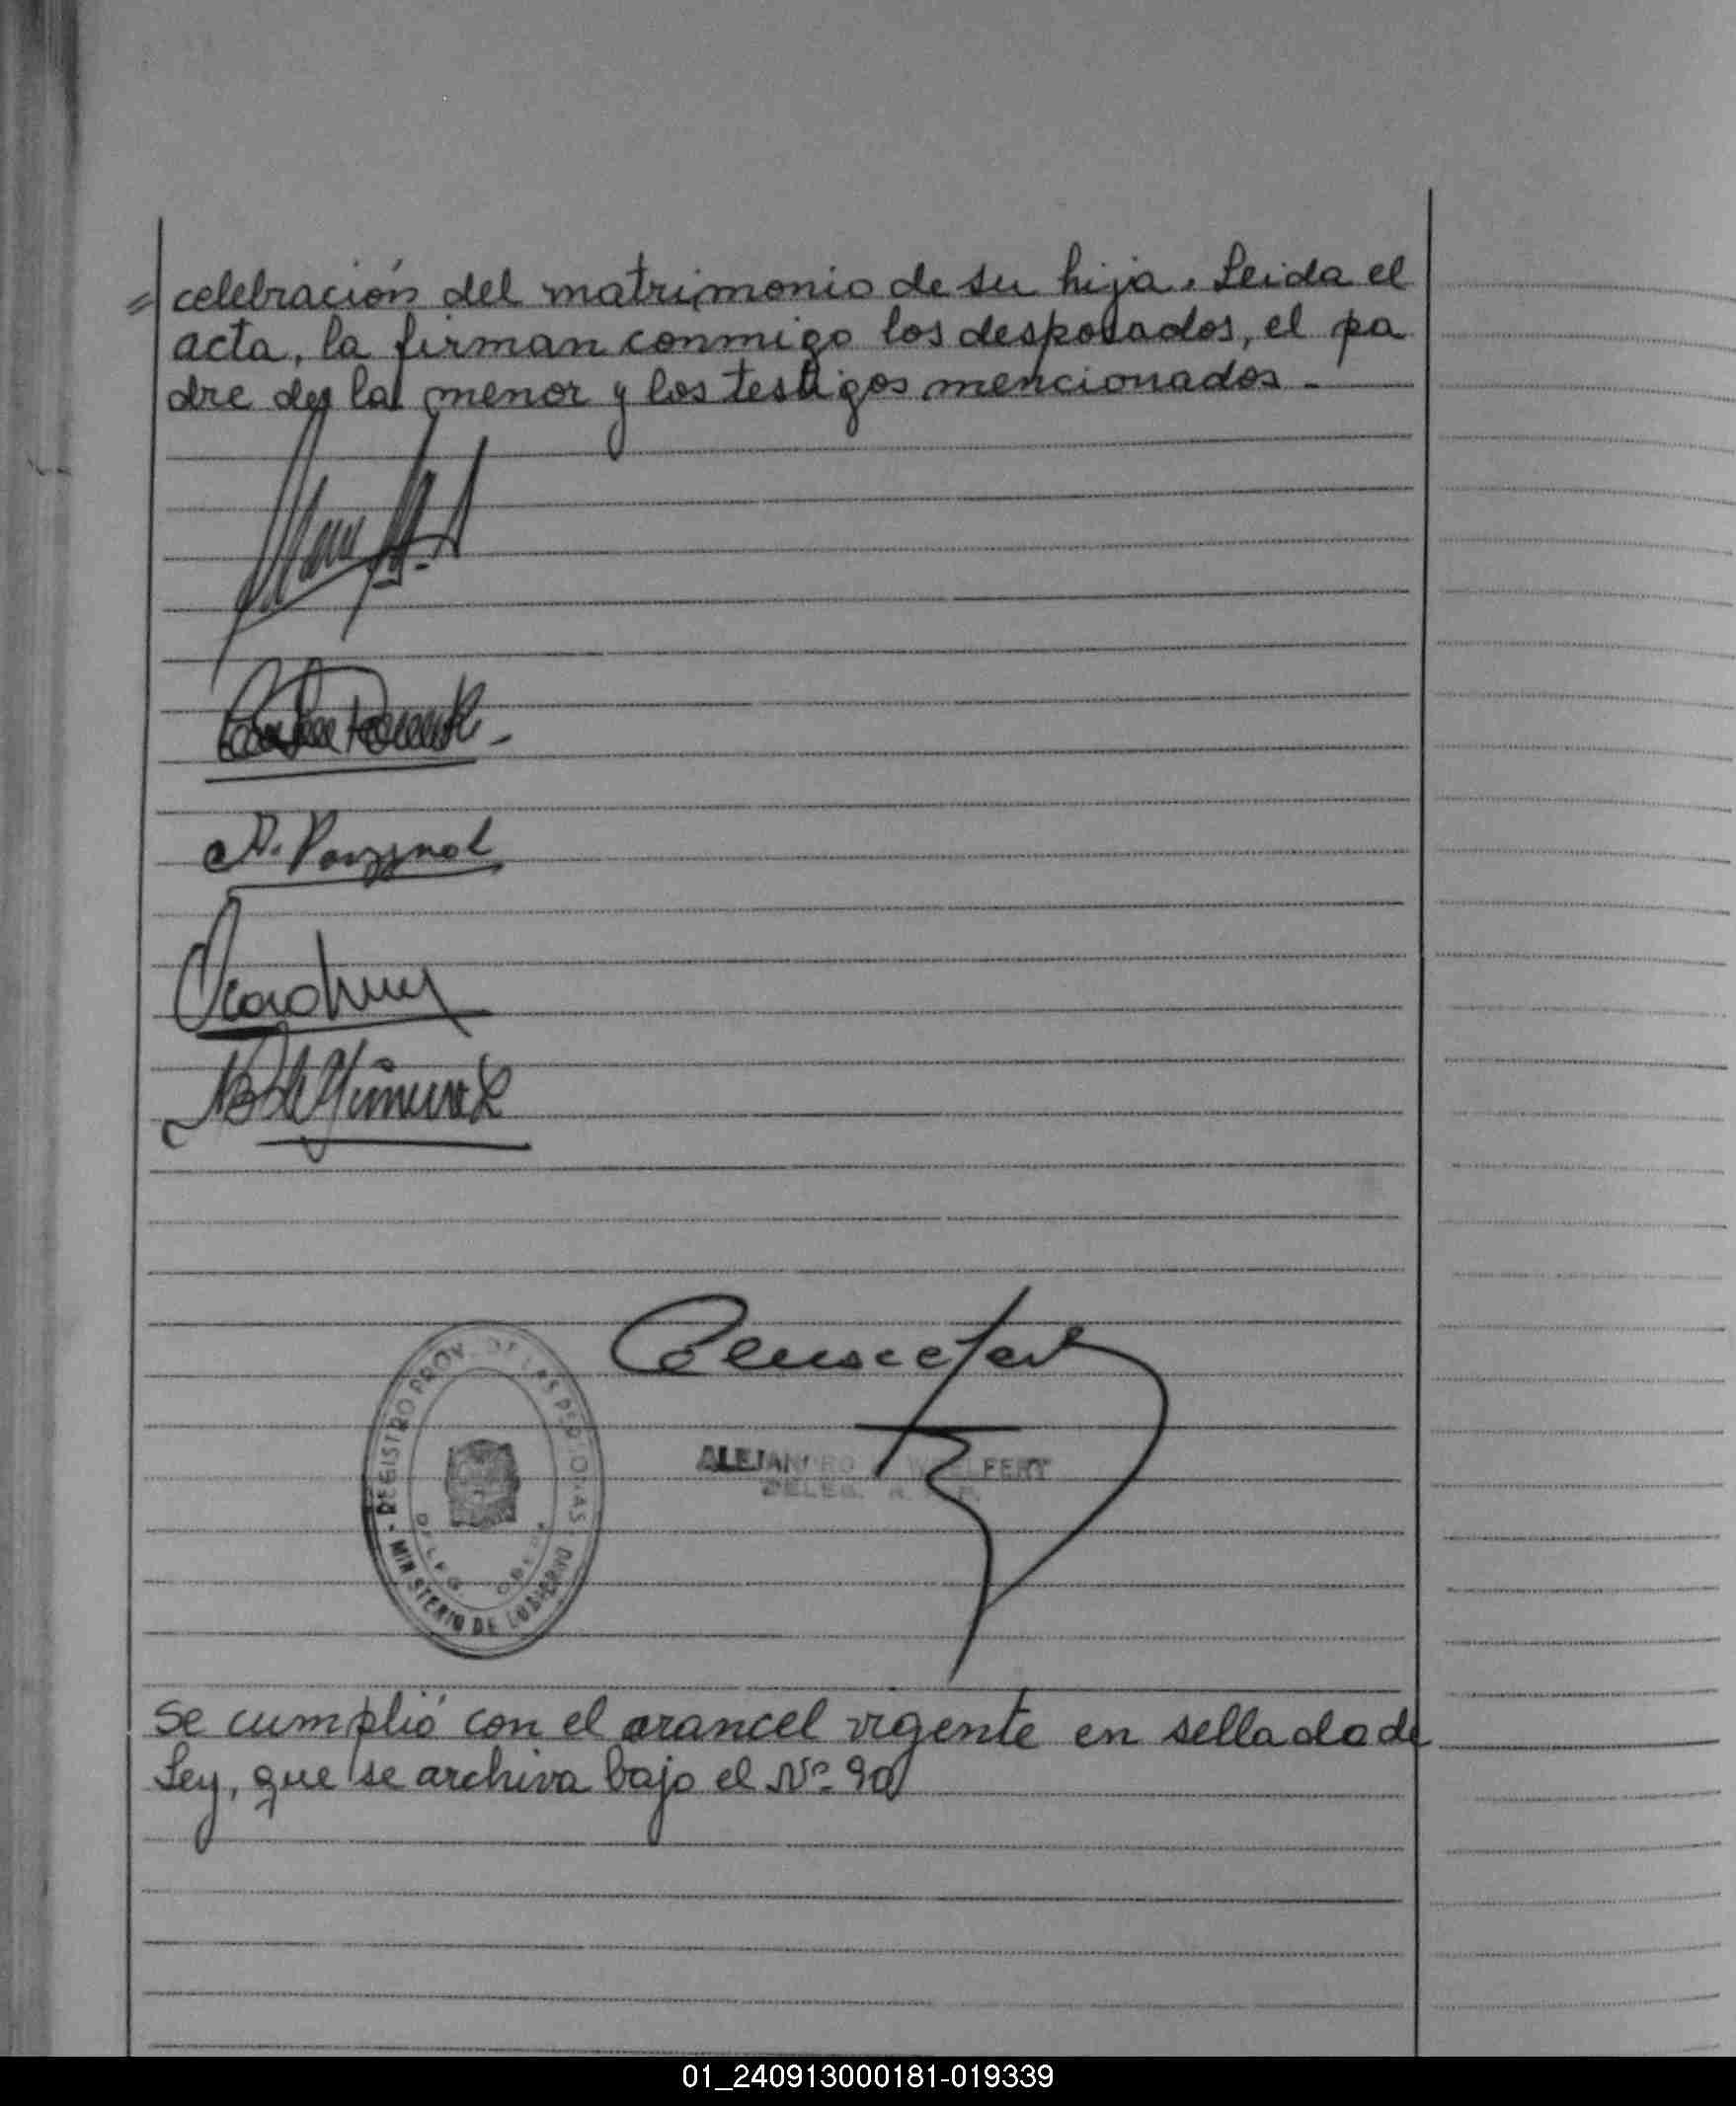 = celebración del matrimonio de su hija. Leida el
acta, la firman conmigo los desposados, el pa
dre de la menor y los testigos mencionados -
REGISTRO PROV. DE LAS PERSONAS
MINISTERIO DE GOBIERNO
DELEG.
ALEJANDRO WELFERT
DELEG. R.
Se cumplió con el arancel vigente en sellado de
Ley, que se archiva bajo el Nº 90
01_240913000181-019339